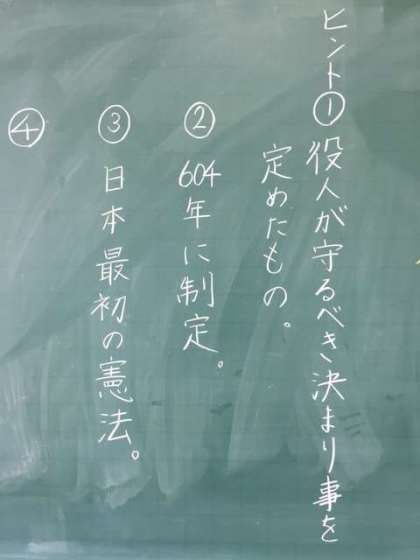 ヒント①役人が守るべき決まり事を
定めたもの。
② 604年に制定。
③ 日本最初の憲法。
④